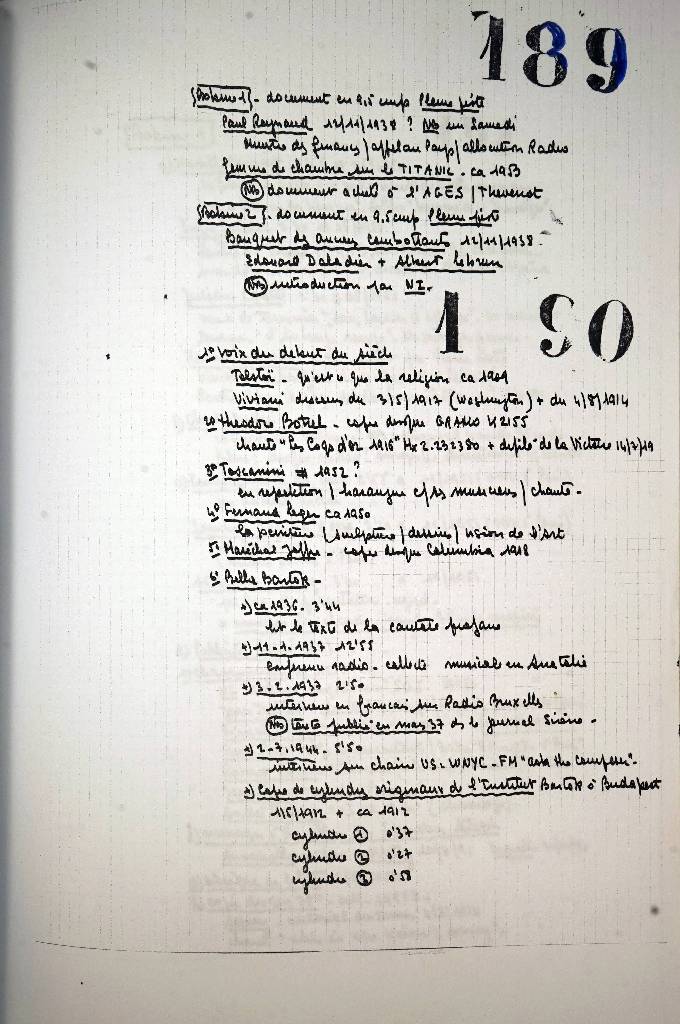 189
{Bobine 1}. document en 9,5 cm/s Pleine piste
Paul Reynaud 12/11/1938 ? NB un Samedi
ministre des finances / appel au Pays / allocution Radio
femme de chambre sur le TITANIC. ca 1953
NB document acheté à l'AGES / Thevenot
{Bobine 2}. document en 9.5 cm/s Pleine piste
Banquet des anciens combattants 12/11/1938.
Edouard Daladier + Albert Lebrun
NB introduction par
190
1° Voix du debut du siècle
Tolstoï - qu'est ce que la religion ca 1909
Viviani discours du 3/5/1917 (Washington) + du 4/8/1914
2° Theodore Botrel - copie disque K 2155
chante "Les Coqs d'or 1916" 2.232380 + defilé de la Victoire 14/7/19
3° Toscanini 1952 ?
en repetition / harangue c/ses musiciens / chante -
4° Fernand Leger ca 1950
la peinture / sculpture / dessins / vision de l'Art
5° Maréchal Joffre - copie disque Columbia 1918
6° Bella Bartok -
1) ca 1936. 3'44
lit le texte de la cantate profane
2) 11-1-1937 12'55
Conference radio. collecte musicale en Anatolie
3) 3-2-1937 2'50
interview en français sur Radio Bruxelles
NB texte publié en mars 37 ds le journal Sirène -
4) 2-7.1944- 5'50
interview sur chaine US. WNYC - FM "ask the composer".
5) Copie de cylindres originaux de l'Institut Bartok à Budapest
1/5/1912 + ca 1912
cylindre 1 0'37
cylindre 2 0'27
cylindre 3 0'58